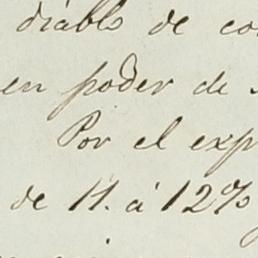 diablo de co
en poder de
Por el exp
de 11. á 12%